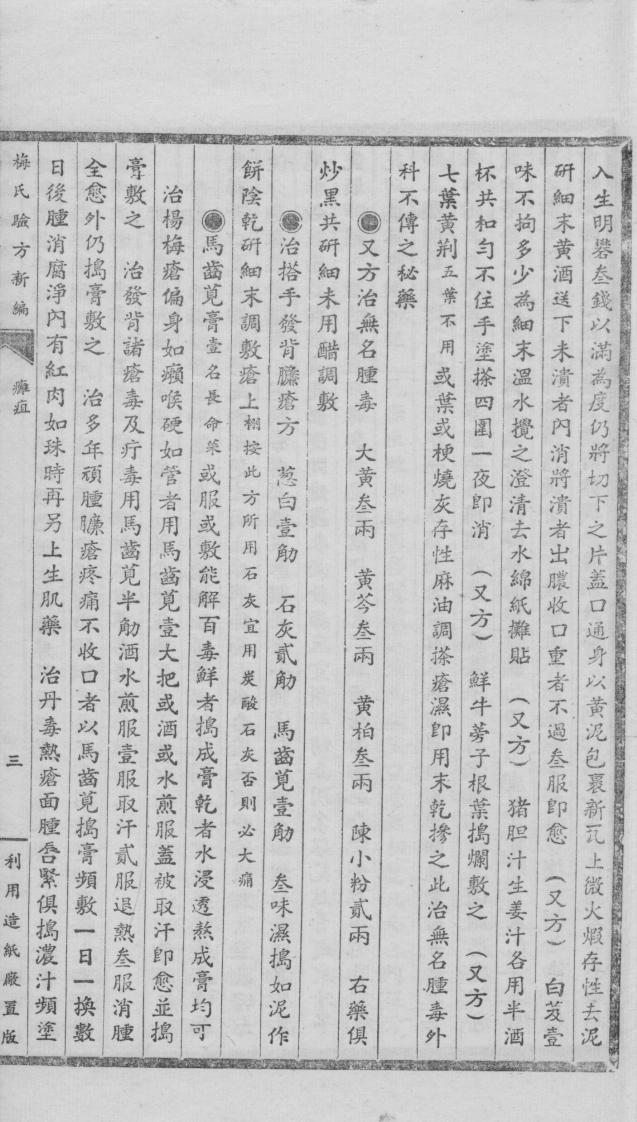 入生明礬叁錢以滿為度仍將切下之片蓋口通身以黃泥包裹新瓦上微火煅存性去泥
研細末黃酒送下未潰者內消將潰者出膿收口重者不過叁服即愈　(又方)　白芨壹
味不拘多少為細末溫水攪之澄清去水綿紙攤貼　(又方)　猪胆汁生姜汁各用半酒
杯共和勻不住手塗搽四圍一夜即消　(又方)　鮮牛蒡子根葉搗爛敷之　(又方)
七葉黃荆五葉不用或葉或梗燒灰存性麻油調搽瘡濕即用末乾摻之此治無名腫毒外
科不傳之秘藥
●又方治無名腫毒　大黃叁兩　黃芩叁兩　黃柏叁兩　陳小粉貳兩　右藥俱
炒黑共研細末用醋調敷
●治搭手發背臁瘡方　葱白壹觔　石灰貳觔　馬齒莧壹觔　叁味濕搗如泥作
餅陰乾研細末調敷瘡上栩按此方所用石灰宜用炭酸石灰否則必大痛
●馬齒莧膏壹名長命菜或服或敷能解百毒鮮者搗成膏乾者水浸透熬成膏均可
治楊梅瘡偏身如癩喉硬如管者用馬齒莧壹大把或酒或水煎服蓋被取汗即愈並搗
膏敷之　治發背諸瘡毒及疔毒用馬齒莧半觔酒水煎服壹服取汗貳服退熱叁服消腫
全愈外仍搗膏敷之　治多年頑腫臁瘡疼痛不收口者以馬齒莧搗膏頻敷一日一換數
日後腫消腐淨內有紅肉如珠時再另上生肌藥　治丹毒熱瘡面腫唇緊俱搗濃汁頻塗
梅氏驗方新編　癰疽　三　利用造紙廠置版